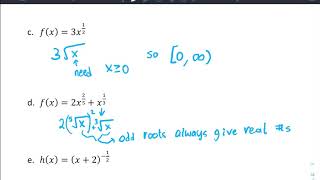 c. f(x) = 3x^{1/2}
3√x so [0, ∞)
need x≥0
d. f(x) = 2x^{2/5} + x^{1/3}
2(⁵√x)² + ³√x
odd roots always give real #s
e. h(x) = (x + 2)^{-1/2}